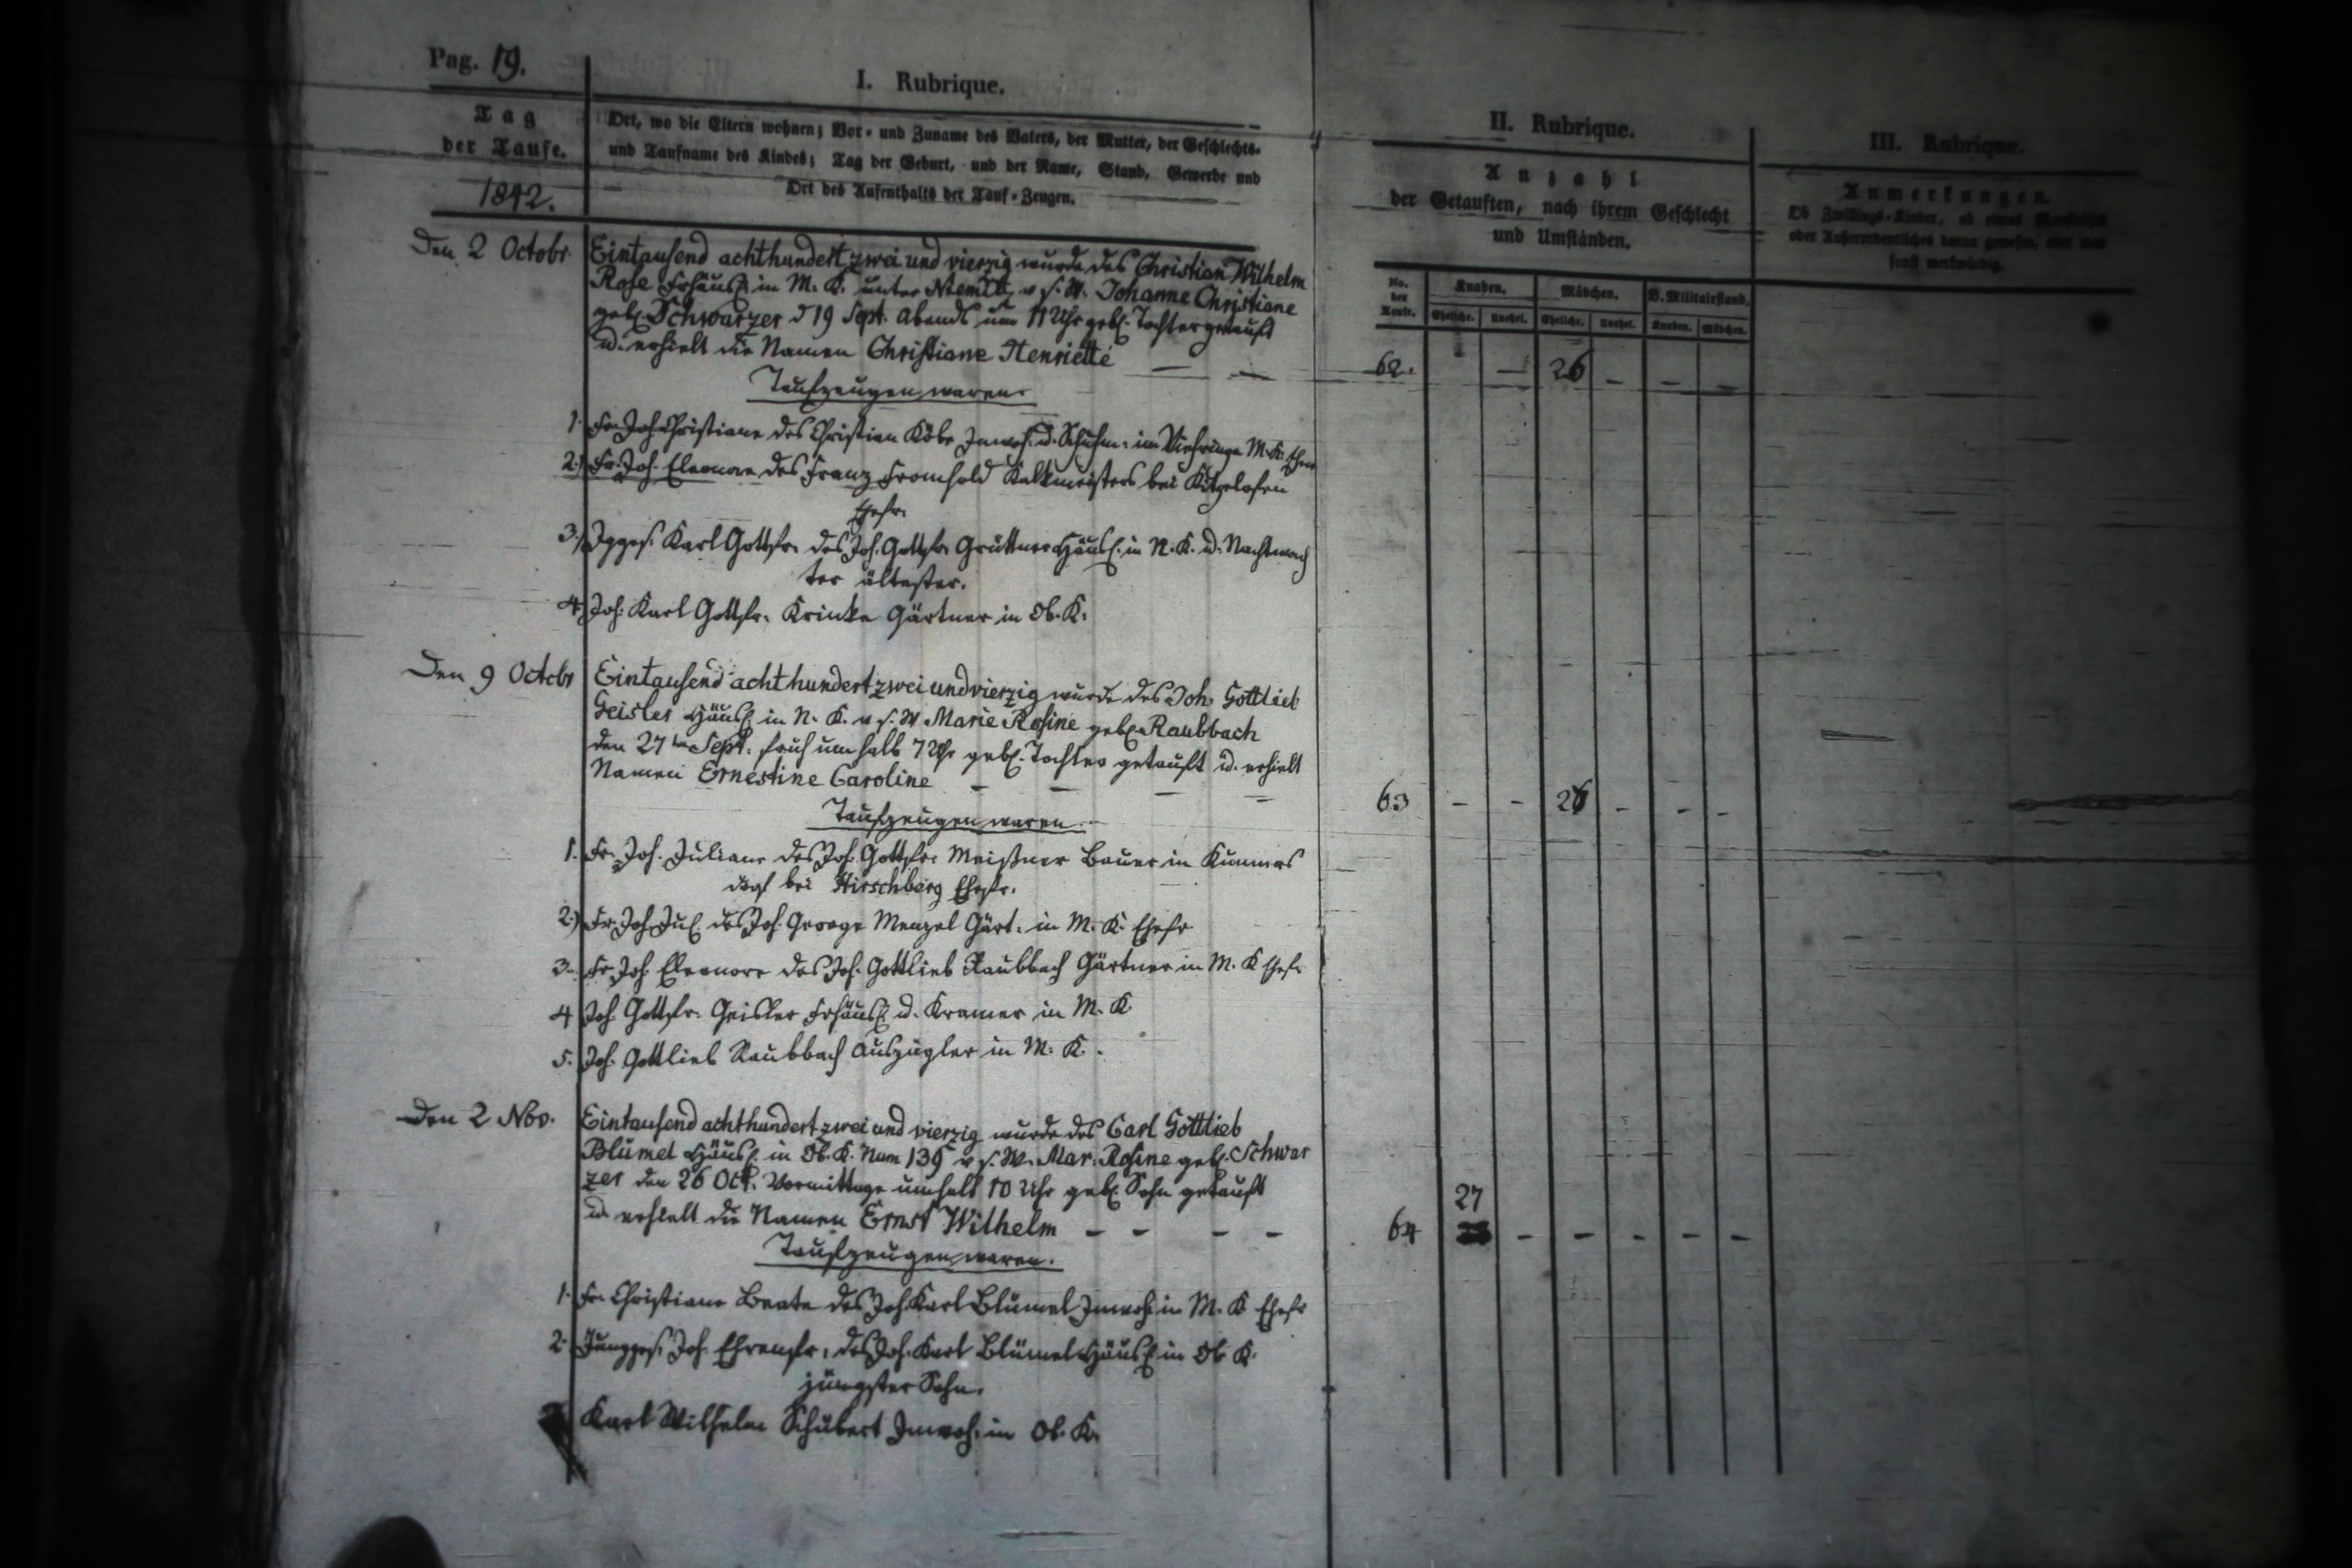 Pag. 19.
I. Rubrique.
Tag
der Taufe.
1842.
Ort, wo die Eltern wohnen; Vor- und Zuname des Vaters, der Mutter, der Geschlechts-
und Taufname des Kindes; Tag der Geburt, und der Name, Stand, Gewerbe und
Ort des Aufenthalts der Tauf-Zeugen.
II. Rubrique.
Anzahl
der Getauften, nach ihrem Geschlecht
und Umständen.
No. der Taufe. Knaben. Mädchen. V. Militairstand.
Eheliche. Unehel. Eheliche. Unehel. Knaben. Mädchen.
III. Rubrique.
Anmerkungen.
Ob Zwillings-Kinder, ob etwas
oder Außerordentliches daran gewesen, oder was
sonst merkwürdig.
Den 2 Octobr. Eintausend achthundert zwei und vierzig wurde des Christian Wilhelm
Rose Frhäusl. in M. K. unter v. s. W. Johanne Christiane
geb. Schwarzer d 19 Sept. Abends um 11 Uhr geb. Tochter getauft
u. erhielt die Namen Christiane Henriette — —
62. — 26 – – –
Taufzeugen waren.
1. Fr. Joh. Christiane des Christian Köbe Inwoh. u. Schuhm. im M. K. Ehefr
2.) Fr. Joh. Eleonore des Franz Fromhold Kalkmeisters bei Kitzelofen
Ehefr.
3.) Jgges. Karl Gottfr. des Joh. Gottfr. Grüttner Häusl. in N. K. u. Nachtwäch
ter ältester.
4.) Joh. Karl Gottfr. Krinke Gärtner in Ob. K.
Den 9 Octobr Eintausend achthundert zwei und vierzig wurde des Joh. Gottlieb
Geisler Häusl. in N. K. v s. W Marie Rosine geb. Raubbach
den 27ten Sept. früh um halb 7 Uhr geb. Tochter getauft u. erhielt
Namen Ernestine Caroline – – – –
63 – – 27 – – –
Taufzeugen waren.
1. Fr. Joh. Juliane des Joh. Gottfr. Meißner Bauer in Kunners
dorf bei Hirschberg Ehefr.
2.) Fr. Joh. Jul. des Joh. George Menzel Gärt. in M. K. Ehefr
3. Fr. Joh. Eleonore des Joh. Gottlieb Raubbach Gärtner in M. K Ehefr
4 Joh. Gottfr. Geisler Frhäusl. u. Kramer in M. K.
5. Joh. Gottlieb Raubbach Auszügler in M. K.
Den 2 Nov. Eintausend achthundert zwei und vierzig wurde des Carl Gottlieb
Blümel Häusl. in Ob. K. Num 139 v s. W. Mar. Rosine geb. Schwar
zer den 26 Oct. Vormittags um halb 10 Uhr geb. Sohn getauft
u. erhielt die Namen Ernst Wilhelm – – – –
27
64 – – – – –
Taufzeugen waren.
1. Fr. Christiane Beate des Joh. Karl Blümel Inwoh. in M. K Ehefr
2. Jungges. Joh. Ehrenfr. des Joh. Karl Blümel Häusl. in Ob. K.
jüngster Sohn.
Karl Wilhelm Schubert Inwoh. in Ob. K.